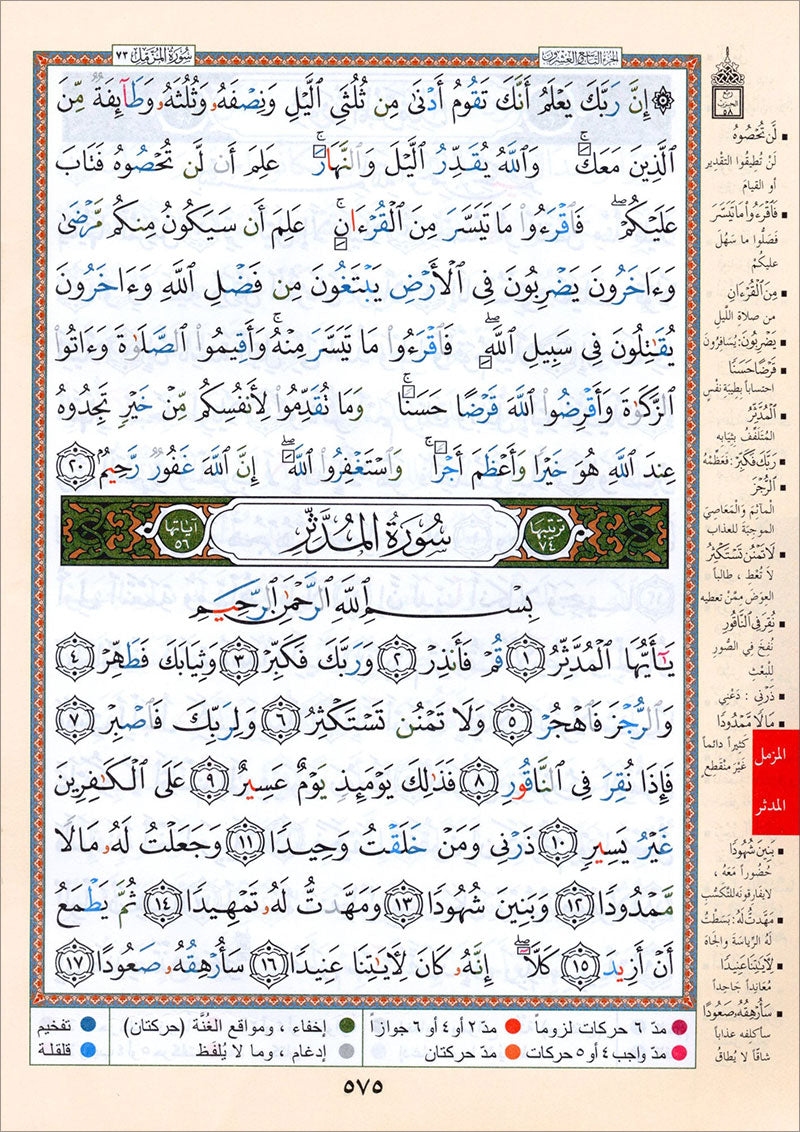 سُورَةُ المُزَّمِّل ٧٣
الجزء التاسع والعشرون
۞ إِنَّ رَبَّكَ يَعْلَمُ أَنَّكَ تَقُومُ أَدْنَىٰ مِن ثُلُثَيِ ٱلَّيْلِ وَنِصْفَهُۥ وَثُلُثَهُۥ وَطَآئِفَةٌ مِّنَ
ٱلَّذِينَ مَعَكَ ۚ وَٱللَّهُ يُقَدِّرُ ٱلَّيْلَ وَٱلنَّهَارَ ۚ عَلِمَ أَن لَّن تُحْصُوهُ فَتَابَ
عَلَيْكُمْ ۖ فَٱقْرَءُوا۟ مَا تَيَسَّرَ مِنَ ٱلْقُرْءَانِ ۚ عَلِمَ أَن سَيَكُونُ مِنكُم مَّرْضَىٰ
وَءَاخَرُونَ يَضْرِبُونَ فِى ٱلْأَرْضِ يَبْتَغُونَ مِن فَضْلِ ٱللَّهِ وَءَاخَرُونَ
يُقَٰتِلُونَ فِى سَبِيلِ ٱللَّهِ ۖ فَٱقْرَءُوا۟ مَا تَيَسَّرَ مِنْهُ ۚ وَأَقِيمُوا۟ ٱلصَّلَوٰةَ وَءَاتُوا۟
ٱلزَّكَوٰةَ وَأَقْرِضُوا۟ ٱللَّهَ قَرْضًا حَسَنًا ۚ وَمَا تُقَدِّمُوا۟ لِأَنفُسِكُم مِّنْ خَيْرٍ تَجِدُوهُ
عِندَ ٱللَّهِ هُوَ خَيْرًا وَأَعْظَمَ أَجْرًا ۚ وَٱسْتَغْفِرُوا۟ ٱللَّهَ ۖ إِنَّ ٱللَّهَ غَفُورٌ رَّحِيمٌ ٢٠
ترتيبها ٧٤ سُورَةُ المُدَّثِّر آياتها ٥٦
بِسْمِ ٱللَّهِ ٱلرَّحْمَٰنِ ٱلرَّحِيمِ
يَٰٓأَيُّهَا ٱلْمُدَّثِّرُ ١ قُمْ فَأَنذِرْ ٢ وَرَبَّكَ فَكَبِّرْ ٣ وَثِيَابَكَ فَطَهِّرْ ٤
وَٱلرُّجْزَ فَٱهْجُرْ ٥ وَلَا تَمْنُن تَسْتَكْثِرُ ٦ وَلِرَبِّكَ فَٱصْبِرْ ٧
فَإِذَا نُقِرَ فِى ٱلنَّاقُورِ ٨ فَذَٰلِكَ يَوْمَئِذٍ يَوْمٌ عَسِيرٌ ٩ عَلَى ٱلْكَٰفِرِينَ
غَيْرُ يَسِيرٍ ١٠ ذَرْنِى وَمَنْ خَلَقْتُ وَحِيدًا ١١ وَجَعَلْتُ لَهُۥ مَالًا
مَّمْدُودًا ١٢ وَبَنِينَ شُهُودًا ١٣ وَمَهَّدتُّ لَهُۥ تَمْهِيدًا ١٤ ثُمَّ يَطْمَعُ
أَنْ أَزِيدَ ١٥ كَلَّآ ۖ إِنَّهُۥ كَانَ لِءَايَٰتِنَا عَنِيدًا ١٦ سَأُرْهِقُهُۥ صَعُودًا ١٧
ربع
الحزب
٥٨
لَّن تُحْصُوهُ
لَنْ تُطيقُوا التقْدِير
أو القيامَ
فَٱقْرَءُوا۟ مَا تَيَسَّرَ
فَصَلُّوا ما سَهُلَ
عليكُمْ
مِنَ ٱلْقُرْءَانِ
من صلاة اللَّيل
يَضْرِبُونَ: يُسَافِرُونَ
قَرْضًا حَسَنًا
احتساباً بطِيبَة نَفْسٍ
ٱلْمُدَّثِّرُ
المُتَلَفِّفُ بثيابه
رَبَّكَ فَكَبِّرْ: فَعَظِّمْهُ
ٱلرُّجْزَ
المآثِمَ وَالمَعَاصِيَ
الموجبَة للعذاب
لَا تَمْنُن تَسْتَكْثِرُ
لا تُعْطِ ، طالباً
العِوَضَ ممَّنْ تعطيه
نُقِرَ فِى ٱلنَّاقُورِ
نُفِخَ فِي الصُّورِ
لِلْبَعْثِ
ذَرْنِى : دَعْنِي
مَالًا مَّمْدُودًا
كَثيراً دائماً
غَيْرَ مُنْقَطِعٍ
المزمل
المدثر
بَنِينَ شُهُودًا
حُضُوراً مَعَهُ ،
لا يفارقونه للتَّكَسُّبِ
مَهَّدتُّ لَهُ: بَسَطْتُ
لَهُ الرِّيَاسَةَ والجَاهَ
لِءَايَٰتِنَا عَنِيدًا
مُعَانِداً جَاحِداً
سَأُرْهِقُهُۥ صَعُودًا
سأكلفه عذاباً
شاقّاً لا يُطَاقُ
مدّ ٦ حركات لزوماً مدّ ٢ أو ٤ أو ٦ جوازاً إخفاء ، ومواقع الغُنَّة (حركتان) تفخيم
مدّ واجب ٤ أو ٥ حركات مدّ حركتان إدغام ، وما لا يُلفَظ قلقلة
٥٧٥